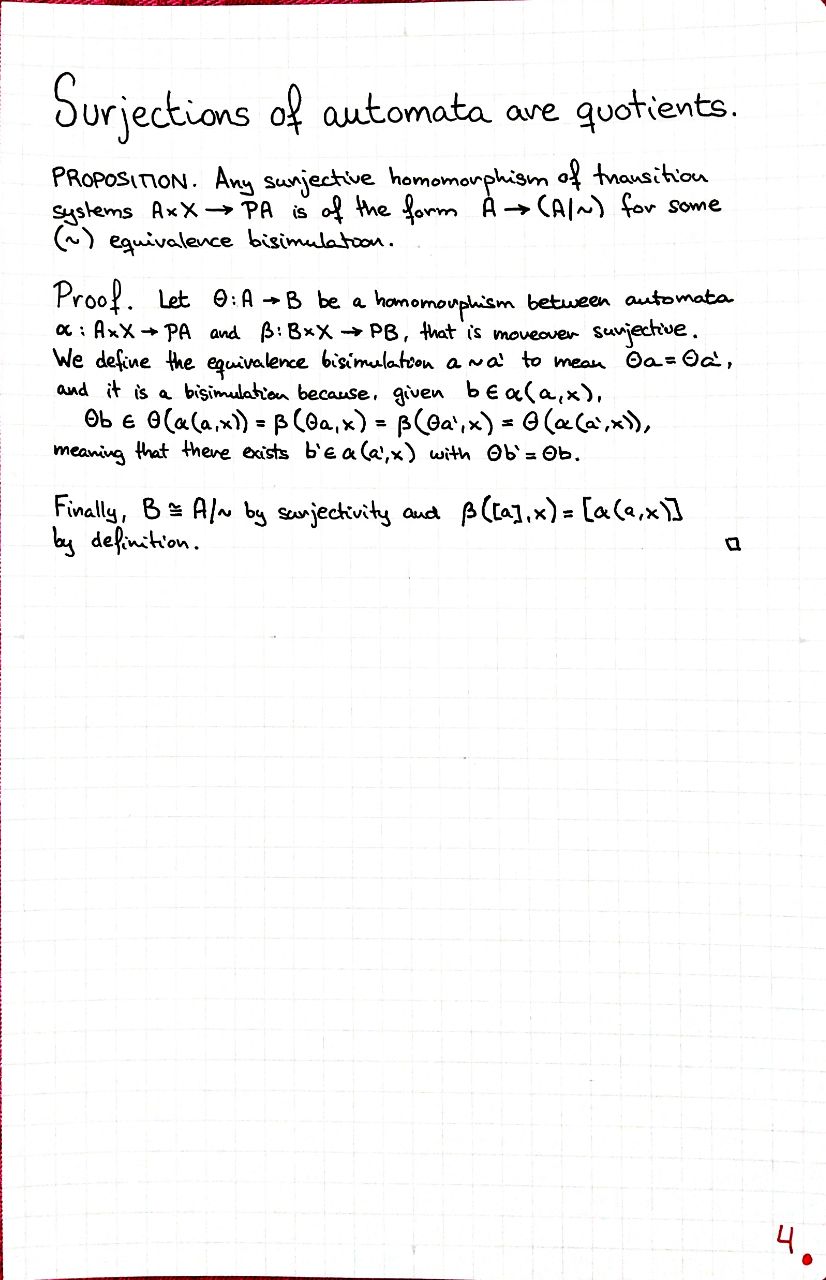 Surjections of automata are quotients.
PROPOSITION. Any surjective homomorphism of transition
systems A×X → PA is of the form A → (A/~) for some
(~) equivalence bisimulation.
Proof. Let Θ:A → B be a homomorphism between automata
α : A×X → PA and β: B×X → PB, that is moreover surjective.
We define the equivalence bisimulation a ~ a' to mean Θa = Θa',
and it is a bisimulation because, given b ∈ α(a,x),
Θb ∈ Θ(α(a,x)) = β(Θa,x) = β(Θa',x) = Θ(α(a',x)),
meaning that there exists b' ∈ α(a',x) with Θb' = Θb.
Finally, B ≅ A/~ by surjectivity and β([a],x) = [α(a,x)]
by definition. □
4.